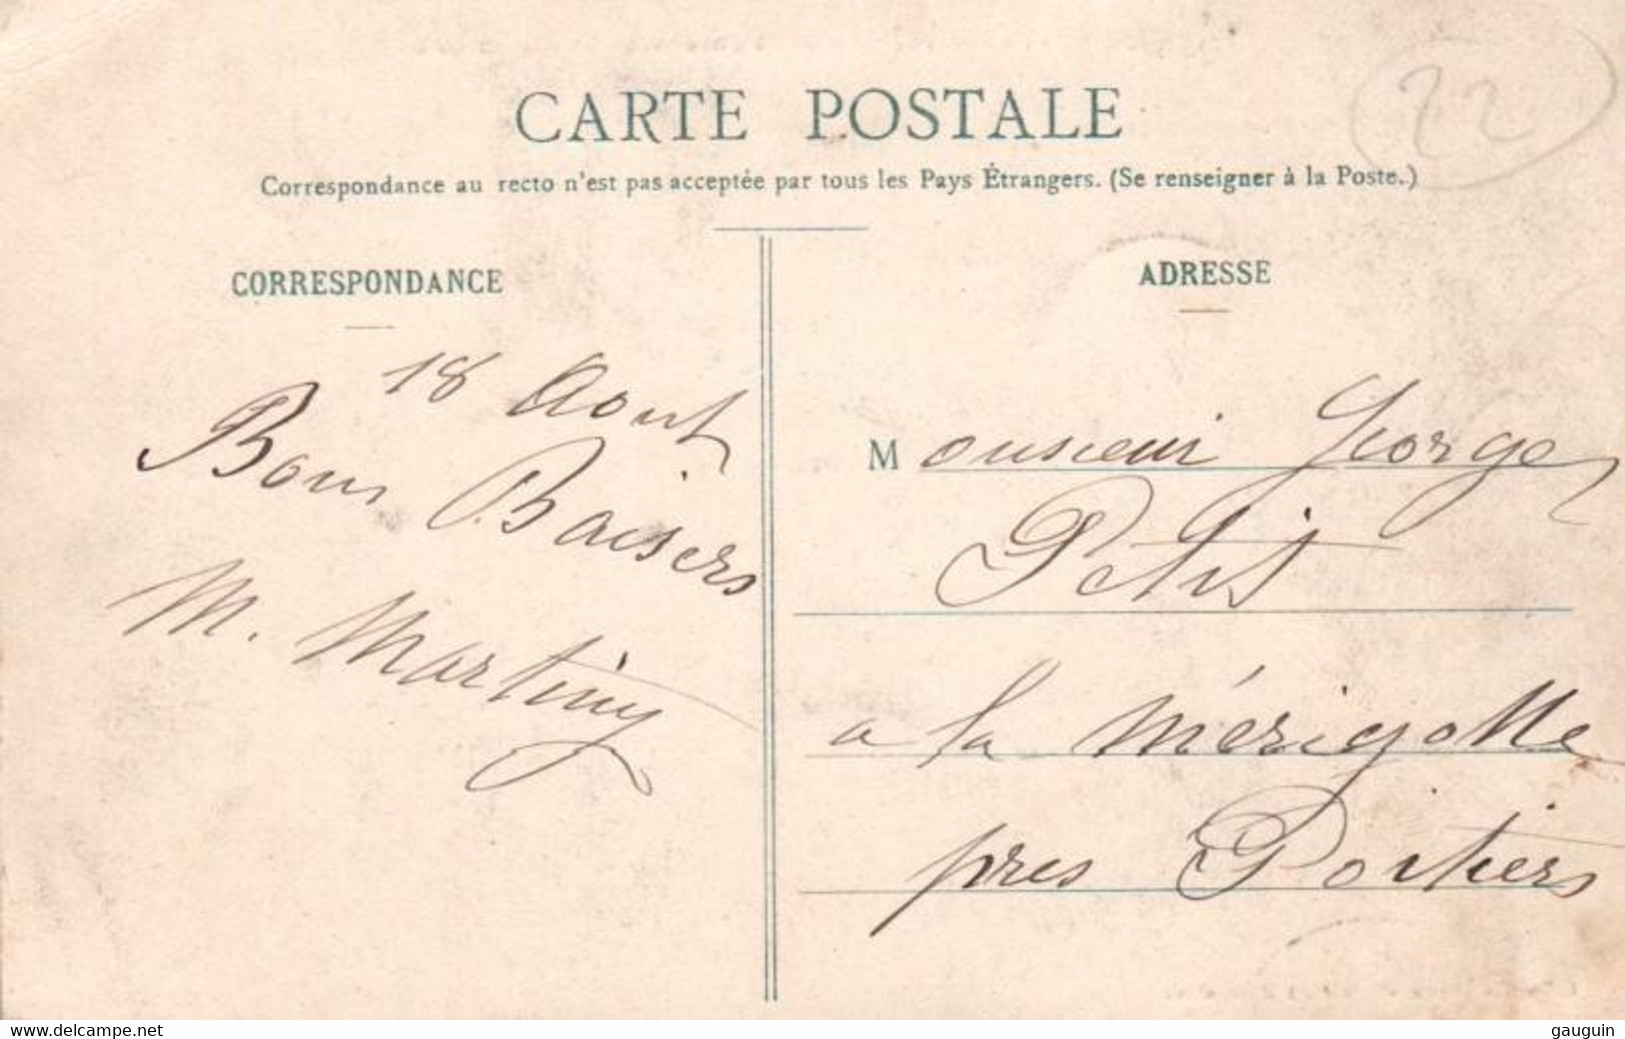 72
CARTE POSTALE
Correspondance au recto n'est pas acceptée par tous les Pays Étrangers. (Se renseigner à la Poste.)
CORRESPONDANCE
18 Aout
Bons Baisers
M. Martiny
ADRESSE
Monsieur Georges
Petit
a la Mérigotte
pres Poitiers
www.delcampe.net
gauguin